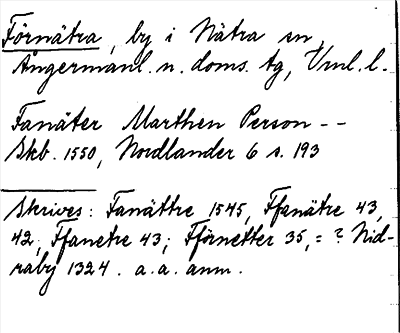 Förnätra, by i Nätra sn,
Ångermanl. n. doms. tg, Vnl. l.
Fanäter Marthen Person --
Skb. 1550, Nordlander 6 s. 193
Skrives: Fanättre 1545, Ffanätre 43,
42, Ffanetre 43; Fförnetter 35, = ? Nid-
raby 1324. a.a. anm.